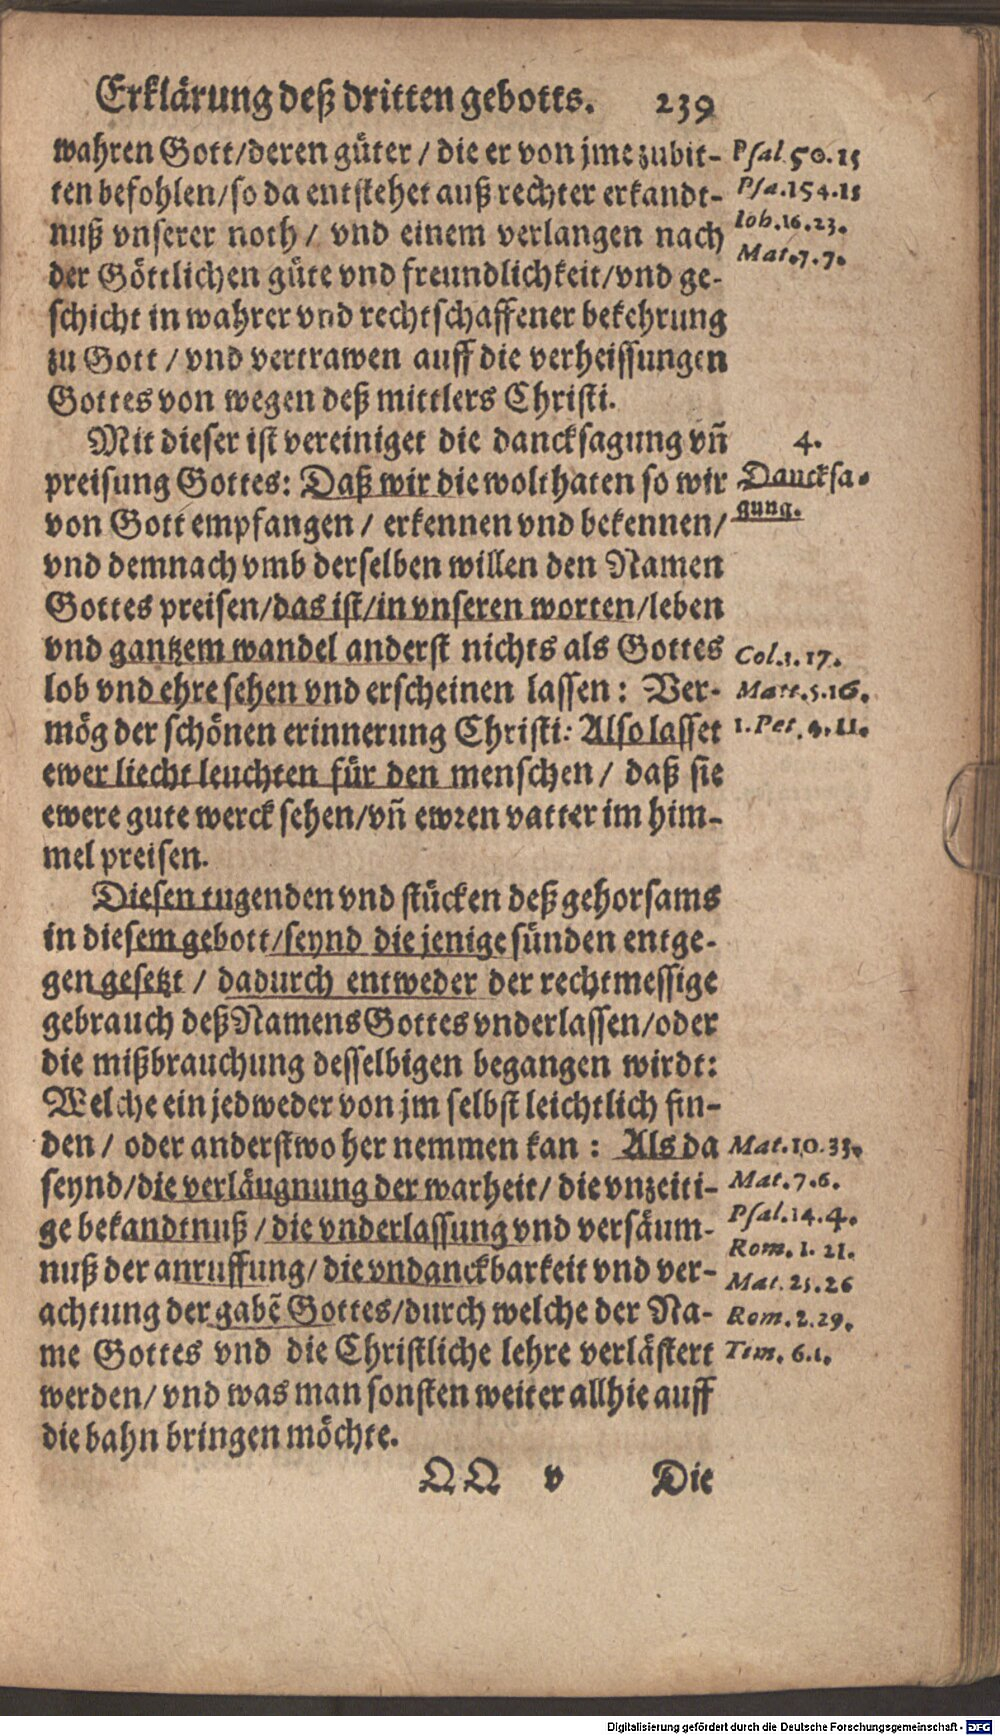 Erklärung deß dritten gebotts. 239
wahren Gott/deren güter / die er von jme zubit-
ten befohlen/so da entstehet auß rechter erkandt-
nuß vnserer noth / vnd einem verlangen nach
der Göttlichen güte vnd freundlichkeit/vnd ge-
schicht in wahrer vnd rechtschaffener bekehrung
zu Gott / vnd vertrawen auff die verheissungen
Gottes von wegen deß mittlers Christi.
Psal.50.15
Psa.154.18
Ioh.16.23.
Mat.7.7.
Mit dieser ist vereiniget die dancksagung vñ
preisung Gottes: Daß wir die wolthaten so wir
von Gott empfangen / erkennen vnd bekennen/
vnd demnach vmb derselben willen den Namen
Gottes preisen/das ist/in vnseren worten/leben
vnd gantzem wandel anderst nichts als Gottes
lob vnd ehre sehen vnd erscheinen lassen: Ver-
mög der schönen erinnerung Christi: Also lasset
ewer liecht leuchten für den menschen / daß sie
ewere gute werck sehen/vñ ewren vatter im him-
mel preisen.
4.
Dancksa-
gung.
Col.3.17.
Matt.5.16.
1.Pet.4.11.
Diesen tugenden vnd stücken deß gehorsams
in diesem gebott/seynd die jenige sünden entge-
gen gesetzt / dadurch entweder der rechtmessige
gebrauch deß Namens Gottes vnderlassen/oder
die mißbrauchung desselbigen begangen wirdt:
Welche ein jedweder von jm selbst leichtlich fin-
den / oder anderstwo her nemmen kan : Als da
seynd/die verläugnung der warheit/ die vnzeiti-
ge bekandtnuß / die vnderlassung vnd versäum-
nuß der anruffung/ die vndanckbarkeit vnd ver-
achtung der gabẽ Gottes/durch welche der Na-
me Gottes vnd die Christliche lehre verlästert
werden/ vnd was man sonsten weiter allhie auff
die bahn bringen möchte.
Mat.10.33.
Mat.7.6.
Psal.14.4.
Rom.1.21.
Mat.25.26
Rom.2.29.
Tim.6.1.
QQ v Die
Digitalisierung gefördert durch die Deutsche Forschungsgemeinschaft - DFG